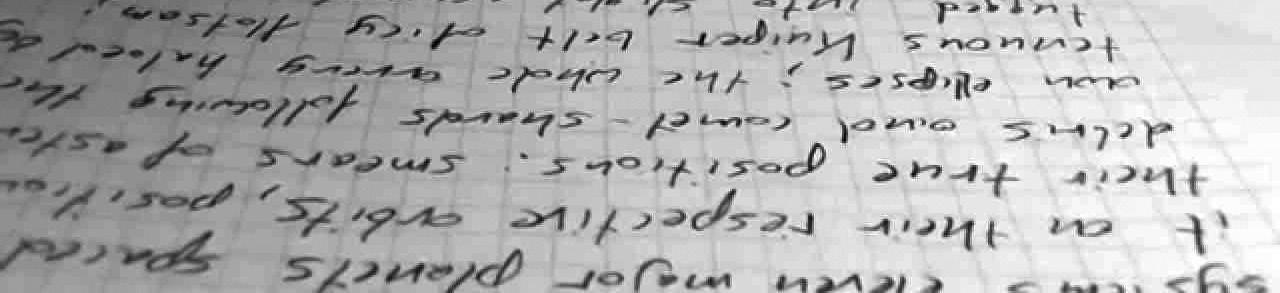 eleven major planets spaced
it on their respective orbits,
their true positions: smears of
debris and comet-shards following the
own ellipses; the whole array haloed
tenuous Kuiper belt of icy flotsam;
into